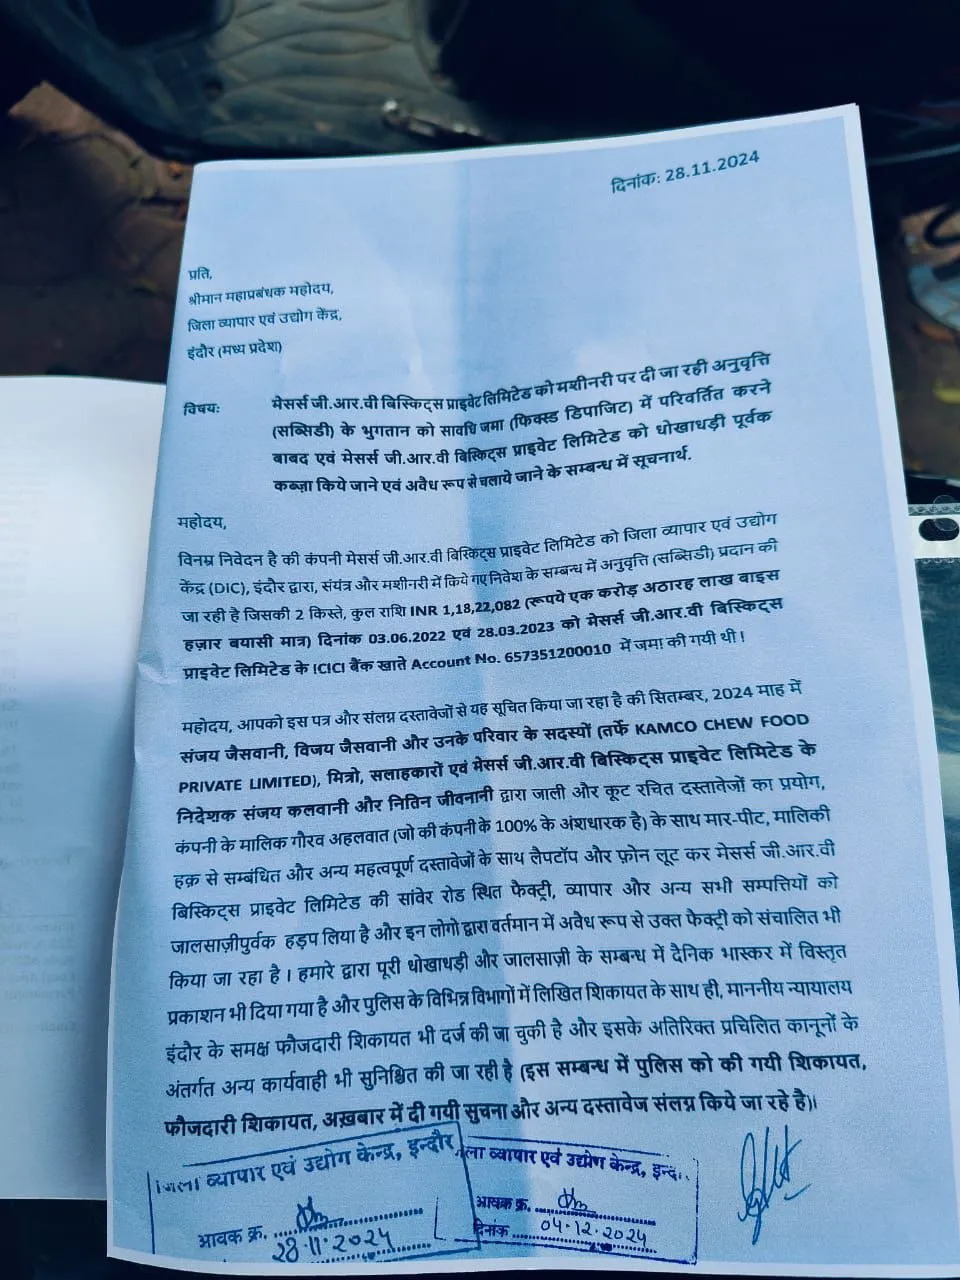 दिनांक: 28.11.2024
प्रति,
श्रीमान महाप्रबंधक महोदय,
जिला व्यापार एवं उद्योग केंद्र,
इंदौर (मध्य प्रदेश)
विषय: मेसर्स जी.आर.वी बिस्किट्स प्राइवेट लिमिटेड को मशीनरी पर दी जा रही अनुवृत्ति
(सब्सिडी) के भुगतान को सावधि जमा (फिक्स्ड डिपाजिट) में परिवर्तित करने
बाबद एवं मेसर्स जी.आर.वी बिस्किट्स प्राइवेट लिमिटेड को धोखाधड़ी पूर्वक
कब्ज़ा किये जाने एवं अवैध रूप से चलाये जाने के सम्बन्ध में सूचनार्थ.
महोदय,
विनम्र निवेदन है की कंपनी मेसर्स जी.आर.वी बिस्किट्स प्राइवेट लिमिटेड को जिला व्यापार एवं उद्योग
केंद्र (DIC), इंदौर द्वारा, संयंत्र और मशीनरी में किये गए निवेश के सम्बन्ध में अनुवृत्ति (सब्सिडी) प्रदान की
जा रही है जिसकी 2 किस्ते, कुल राशि INR 1,18,22,082 (रूपये एक करोड़ अठारह लाख बाइस
हज़ार बयासी मात्र) दिनांक 03.06.2022 एवं 28.03.2023 को मेसर्स जी.आर.वी बिस्किट्स
प्राइवेट लिमिटेड के ICICI बैंक खाते Account No. 657351200010 में जमा की गयी थी !
महोदय, आपको इस पत्र और संलग्न दस्तावेजों से यह सूचित किया जा रहा है की सितम्बर, 2024 माह में
संजय जैसवानी, विजय जैसवानी और उनके परिवार के सदस्यों (तर्फे KAMCO CHEW FOOD
PRIVATE LIMITED), मित्रो, सलाहकारों एवं मेसर्स जी.आर.वी बिस्किट्स प्राइवेट लिमिटेड के
निदेशक संजय कलवानी और नितिन जीवनानी द्वारा जाली और कूट रचित दस्तावेजों का प्रयोग,
कंपनी के मालिक गौरव अहलवात (जो की कंपनी के 100% के अंशधारक है) के साथ मार-पीट, मालिकी
हक़ से सम्बंधित और अन्य महत्वपूर्ण दस्तावेजों के साथ लैपटॉप और फ़ोन लूट कर मेसर्स जी.आर.वी
बिस्किट्स प्राइवेट लिमिटेड की सांवेर रोड स्थित फैक्ट्री, व्यापार और अन्य सभी सम्पत्तियों को
जालसाज़ीपुर्वक हड़प लिया है और इन लोगो द्वारा वर्तमान में अवैध रूप से उक्त फैक्ट्री को संचालित भी
किया जा रहा है । हमारे द्वारा पूरी धोखाधड़ी और जालसाज़ी के सम्बन्ध में दैनिक भास्कर में विस्तृत
प्रकाशन भी दिया गया है और पुलिस के विभिन्न विभागों में लिखित शिकायत के साथ ही, माननीय न्यायालय
इंदौर के समक्ष फौजदारी शिकायत भी दर्ज की जा चुकी है और इसके अतिरिक्त प्रचिलित कानूनों के
अंतर्गत अन्य कार्यवाही भी सुनिश्चित की जा रही है (इस सम्बन्ध में पुलिस को की गयी शिकायत,
फौजदारी शिकायत, अख़बार में दी गयी सुचना और अन्य दस्तावेज संलग्न किये जा रहे है)।
जिला व्यापार एवं उद्योग केन्द्र, इन्दौर
आवक क्र.
28.11.2024
ला व्यापार एवं उद्योग केन्द्र, इन्द
आवक क्र.
दिनांक 04.12.2024